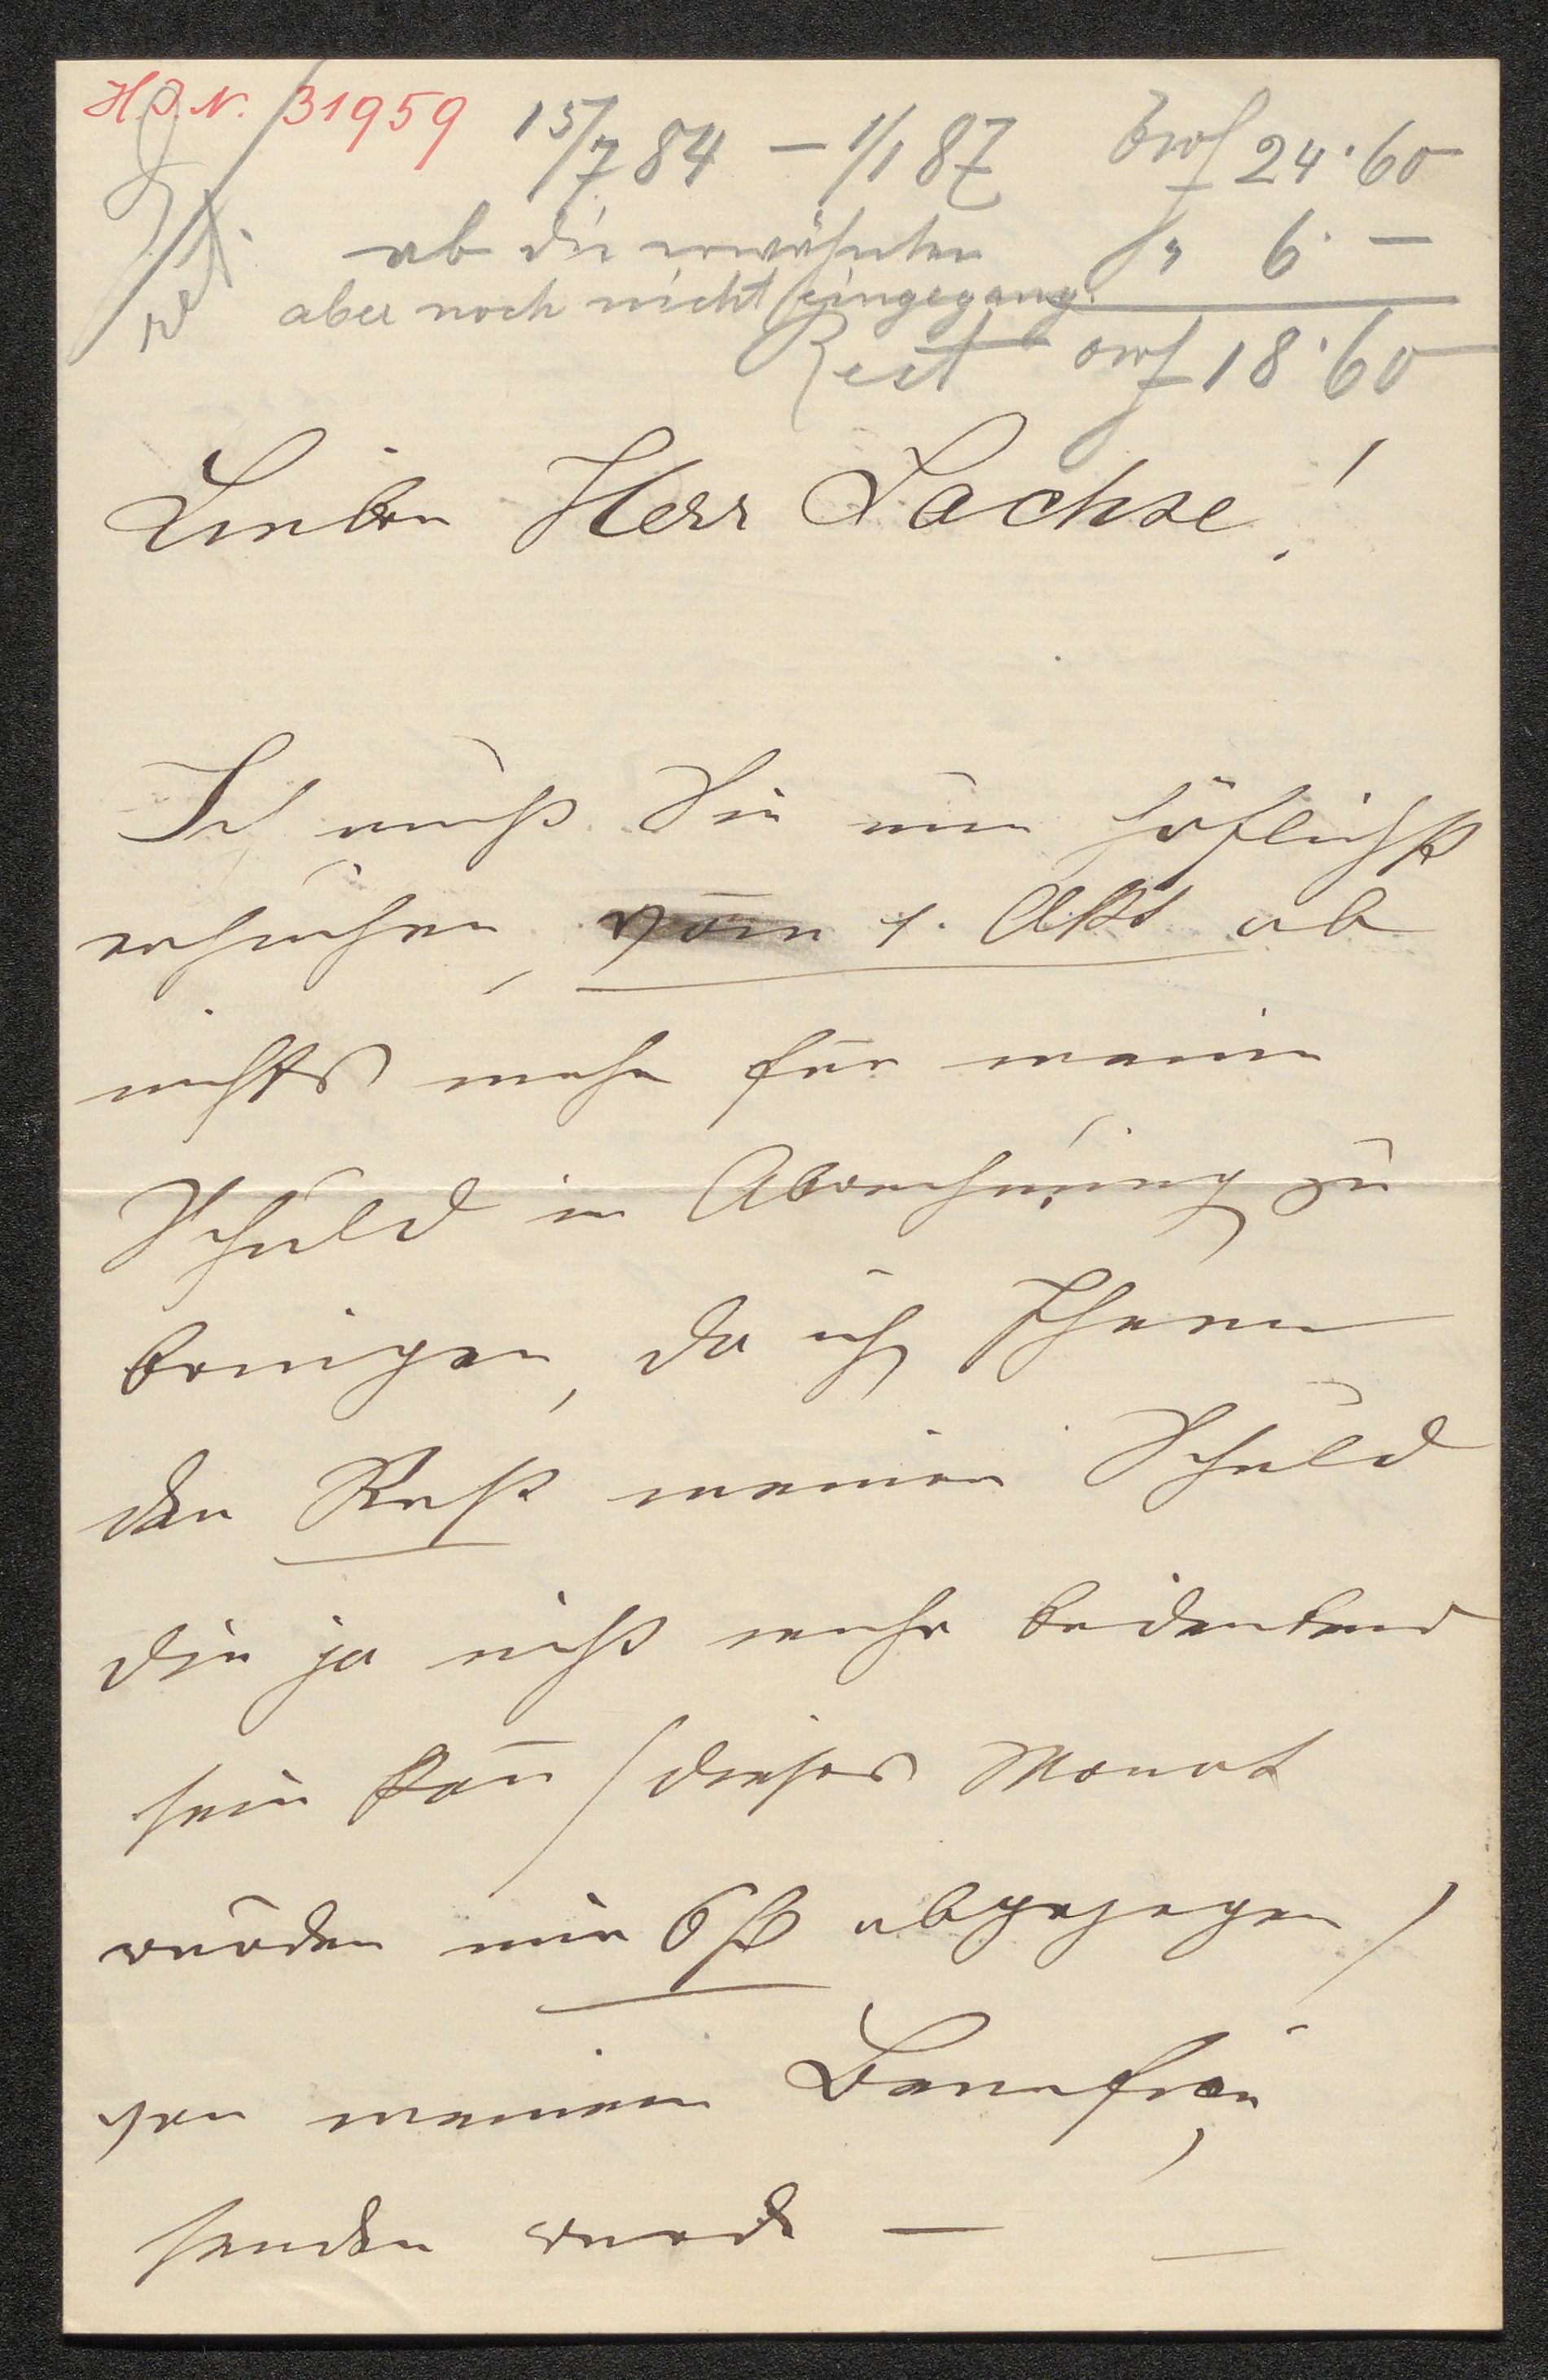 H.I.N. 31959
15/7 84 – 1/1 87 24·60
ab die erwähnten " 6·–
aber noch nicht eingegang.
Rest 18·60
Lieber Herr Sachse!
Ich muß Sie nun höflichst
ersuchen, vom 1. Okt ab
nichts mehr für meine
Schuld in Abrechnung zu
bringen, da ich Ihnen
den Rest meiner Schuld
die ja nicht mehr bedeutend
sein kann (dieses Monat
wurden mir 6 fl abgezogen)
von meinem Benefice,
senden werde —